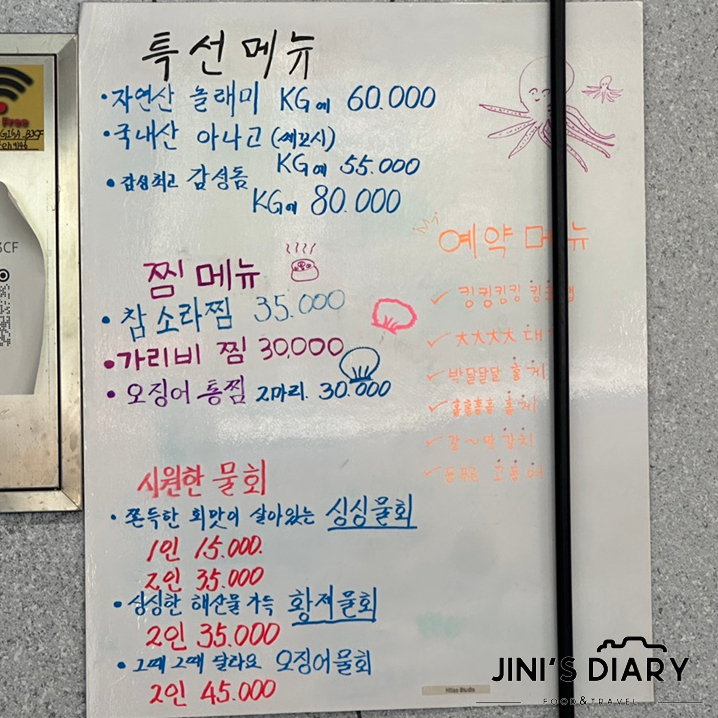 특선메뉴
·자연산 놀래미 KG에 60.000
·국내산 아나고 (쎄꼬시)
KG에 55.000
·감성최고 감성돔
KG에 80.000
찜 메뉴
·참소라찜 35.000
·가리비 찜 30,000
·오징어 통찜 2마리. 30.000
시원한 물회
·쫀득한 회맛이 살아있는 싱싱물회
1인 15.000.
2인 35.000
·싱싱한 해산물 가득 황제물회
2인 35.000
·그때그때 달라요 오징어물회
2인 45.000
예약 메뉴
✓ 킹킹킹킹
✓ 大大大大 대
✓ 박달달달
✓ 홀홀홀홀
Free
3CF
Hise Studio
JINI'S DIARY
FOOD&TRAVEL